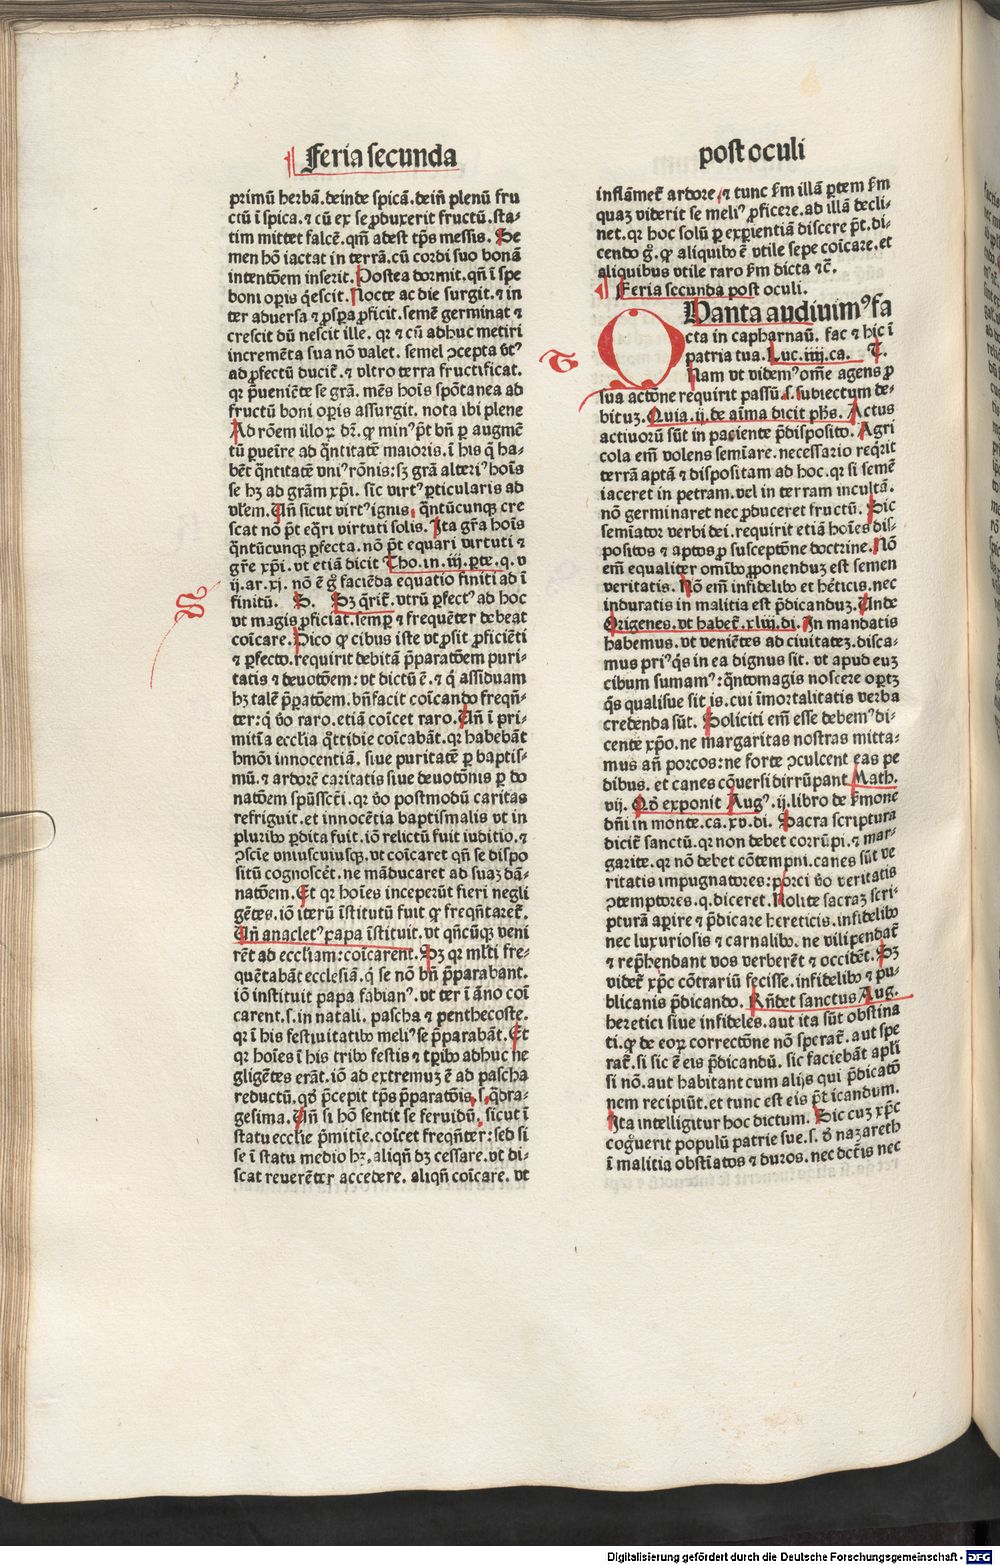 Feria secunda
post oculi
primū herbā. deinde spicā. dein̄ plenū fru
ctū ī spica. ⁊ cū ex se ꝓduxerit fructū. sta-
tim mittet falcē. qm̄ adest tp̄s messis. Se
men hō iactat in terrā. cū cordi suo bonā
intentōem inserit. Postea dormit. qn̄ ī spe
boni oꝑis q̄escit. Nocte ac die surgit. ⁊ in
ter aduersa ⁊ ꝓsꝑa ꝓficit. semē germinat ⁊
crescit dū nescit ille. qꝛ ⁊ cū adhuc metiri
incremēta sua nō valet. semel ↄcepta v̓tꝰ
ad ꝓfectū ducit̄. ⁊ vltro terra fructificat.
qꝛ p̄ueniēte se grā. mēs hoīs spōtanea ad
fructū boni oꝑis assurgit. nota ibi plene
Ad rōem illoꝝ dꝛ. ꝙ minꝰ p̄t bn̄ ꝑ augmē
tū ꝑueīre ad q̄ntitatē maioris. ī his q̄ ha-
bēt q̄ntitatē vniꝰ rōnis: sꝫ grā alteriꝰ hoīs
se hꝫ ad grām xp̄i. sic̄ virtꝰ ꝑticularis ad
vl̄em. Un̄ sicut virtꝰ ignis. q̄ntūcunqꝫ cre
scat nō p̄t eq̄ri virtuti solis. Ita gr̄a hoīs
q̄ntūcunqꝫ ꝑfecta. nō p̄t equari virtuti ⁊
gr̄e xp̄i. vt etiā dicit Tho. in. iij. ꝑte. q. v
ij. ar. xj. nō ē ḡ faciēda equatio finiti ad ī
finitū. S. Sꝫ q̄rit̄. vtrū ꝑfectꝰ ad hoc
vt magis ꝓficiat. semꝑ ⁊ frequēter debeat
coīcare. Dico ꝙ cibus iste vt ꝓsit ꝓficiēti
⁊ ꝑfecto. requirit debitā p̄paratōem puri-
tatis ⁊ deuotōem: vt dictū ē. ⁊ q̄ assiduam
hꝫ talē p̄ꝑatōem. bn̄facit coīcando freqn̄-
ter: q̄ v̓o raro. etiā coīcet raro. Un̄ ī pri-
mitīa ecclīa q̄ttidie coīcabāt. qꝛ habebāt
hmōi innocentiā. siue puritatē ꝑ baptis-
mū. ⁊ ardorē caritatis siue deuotōnis ꝑ do
natōem spūssct̄i. qꝛ v̓o postmodū caritas
refriguit. et innocētia baptismalis vt in
pluribꝰ ꝑdita fuit. iō relictū fuit iuditio. ⁊
ↄscīe vniuscuiusqꝫ. vt coīcaret qn̄ se dispo
sitū cognoscēt. ne māducaret ad suaꝫ dā-
natōem. Et qꝛ hoīes inceperūt fieri negli
gētes. iō iterū īstitutū fuit ꝙ freqn̄taret̄.
Un̄ anacletꝰ papa īstituit. vt qn̄cūqꝫ veni
rēt ad eccliam: coīcarent. Sꝫ qꝛ ml̓ti fre-
quētabāt ecclesiā. q̄ se nō bn̄ p̄parabant.
iō instituit papa fabianꝰ. vt ter ī āno coī
carent. s. in natali. pascha ⁊ penthecoste.
qꝛ ī his festiuitatibꝰ meliꝰ se p̄parabāt. Et
qꝛ hoīes ī his tribꝰ festis ⁊ tꝑibꝰ adhuc ne
gligētes erāt. iō ad extremuꝫ ē ad pascha
reductū. qd̓ p̄cepit tp̄s p̄paratōis. s. q̄dra-
gesima. Un̄ si hō sentit se feruidū. sicut ī
statu ecclie p̄mitīe. coīcet freqn̄ter: sed si
se ī statu medio hꝫ. aliqn̄ dꝫ cessare. vt di-
scat reuerēter accedere. aliqn̄ coīcare. vt
inflāmet̄ ardore. ⁊ tunc ẜm illā ꝑtem ẜm
quaꝫ viderit se meliꝰ ꝓficere. ad illā decli-
net. qꝛ hoc solū ꝑ exꝑientiā discere p̄t. di-
cendo ḡ. ꝙ aliquibꝰ ē vtile sepe coīcare. et
aliquibus vtile raro ẜm dicta ⁊c̄.
Feria secunda post oculi.
QUanta audiuimꝰ fa
cta in capharnaū. fac ⁊ hic ī
patria tua. Luc. iiij. ca. T.
Nam vt videmꝰ om̄e agens ꝓ
sua actōne requirit passū. s. subiectum de-
bituꝫ. Quia. ij. de aīma dicit ph̄s. Actus
actiuorū sūt in paciente p̄disposito. Agri
cola em̄ volens semīare. necessario req̄rit
terrā aptā ⁊ dispositam ad hoc. qꝛ si semē
iaceret in petram. vel in terram incultā.
nō germinaret nec ꝓduceret fructū. Sic
semīator verbi dei. requirit etiā hoīes dis-
positos ⁊ aptos ꝓ susceptōne doctrine. Nō
em̄ equaliter omībꝰ ꝓponenduꝫ est semen
veritatis. Nō em̄ infidelibꝰ et hēticis. nec
induratis in malitia est p̄dicanduꝫ. Unde
Origenes. vt habet̄. xliij. di. In mandatis
habemus. vt veniētes ad ciuitateꝫ. disca-
mus priꝰ q̄s in ea dignus sit. vt apud euꝫ
cibum sumamꝰ: q̄ntomagis noscere oꝑtꝫ
q̄s qualisue sit is. cui īmortalitatis verba
credenda sūt. Soliciti em̄ esse debemꝰ di-
cente xp̄o. ne margaritas nostras mitta-
mus an̄ porcos: ne forte ↄculcent eas pe
dibus. et canes cōuersi dirrūpant Math.
vij. Qd̓ exponit Augꝰ. ij. libro de ẜmone
dn̄i in monte. ca. xv. di. Sacra scriptura
dicit̄ sanctū. qꝛ non debet corrūpi. ⁊ mar-
garite. qꝛ nō debet cōtempni. canes sūt ve
ritatis impugnatores: porci v̓o veritatis
ↄtemptores. q. diceret. Nolite sacraꝫ scri-
pturā aꝑire ⁊ p̄dicare hereticis. infidelibꝰ
nec luxuriosis ⁊ carnalibꝰ. ne vilipendāt
⁊ rep̄hendant vos verberēt ⁊ occidēt. Sꝫ
videt̄ xp̄c cōtrariū fecisse. infidelibꝰ ⁊ pu-
blicanis p̄dicando. Rn̄det sanctus Aug.
heretici siue infideles. aut ita sūt obstina
ti. ꝙ de eoꝝ correctōne nō sperat̄. aut spe
rat̄. si sic ē eis p̄dicandū. sic faciebāt apl̓i
si nō. aut habitant cum alijs qui p̄dicatō
nem recipiūt. et tunc est eis p̄dicandum.
Ita intelligitur hoc dictum. Sic cuꝫ xp̄c
cog̓uerit populū patrie sue. s. d̓ nazareth
ī malitia obstīatos ⁊ duros. nec dct̄is nec
Digitalisierung gefördert durch die Deutsche Forschungsgemeinschaft - DFG